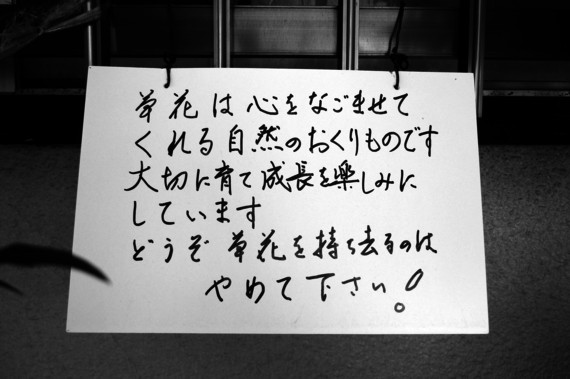 草花は心をなごませて
くれる自然のおくりものです
大切に育て成長を楽しみに
しています
どうぞ草花を持ち去るのは
やめて下さい!